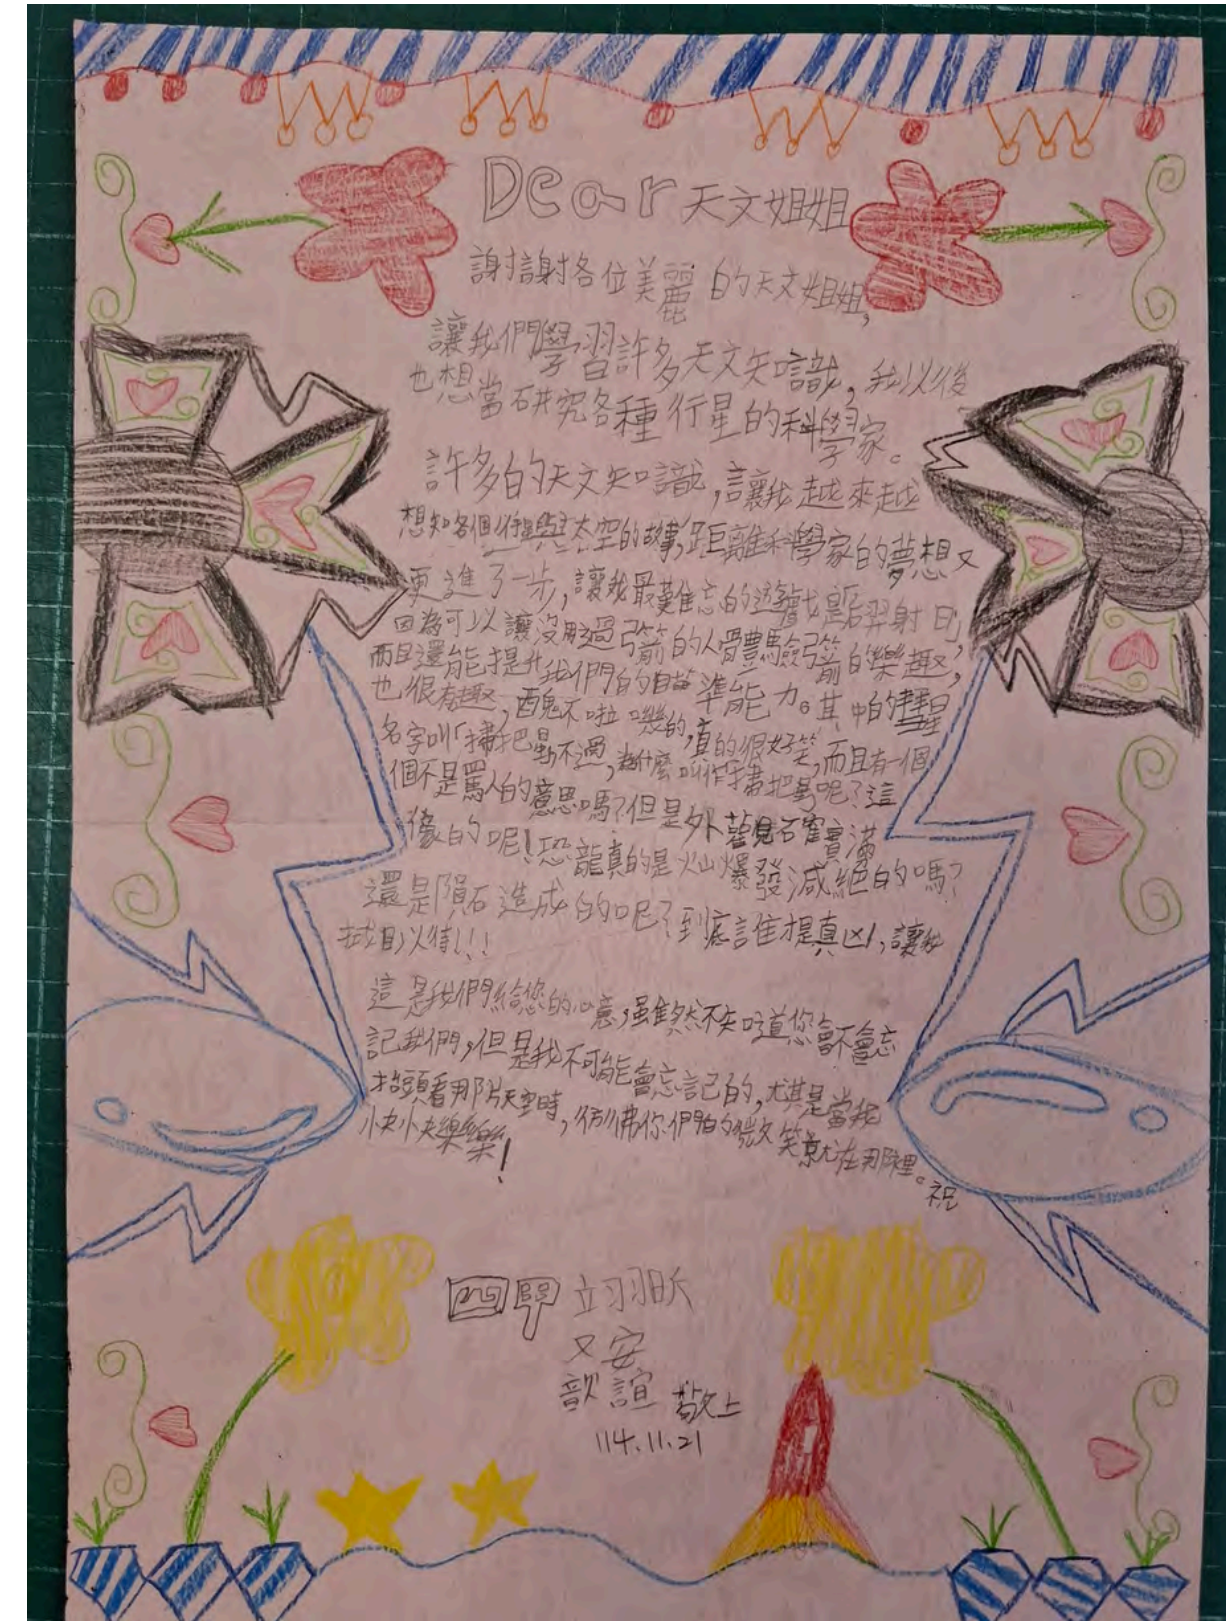 Dear天文姐姐
謝謝各位美麗的天文姐姐,
讓我們學習許多天文知識,我以後
也想當研究各種行星的科學家。
許多的天文知識,讓我越來越
想知各個行星與太空的故事,距離科學家的夢想又
更進了一步,讓我最難忘的遊戲是后羿射日,
因為可以讓沒用過弓箭的人體驗弓箭的樂趣,
而且還能提升我們的瞄準能力。其中的彗星
也很有趣,醜不啦嘰的,真的很好笑,而且有一個
名字叫「掃把星不過,為什麼叫作掃把星呢?這
個不是罵人的意思嗎?但是外
像的呢!恐龍真的是火山爆發滅絕的嗎?
還是隕石造成的呢?到底誰才是真凶!,讓我
拭目以待!!!
這是我們給您的心意,雖然不知道您會不會忘
記我們,但是我不可能會忘記的,尤其是當我
抬頭看那片天空時,彷彿你們的微笑就在那裡。祝
快快樂樂!
四甲 立羽昕
又安
歆誼 敬上
114.11.21